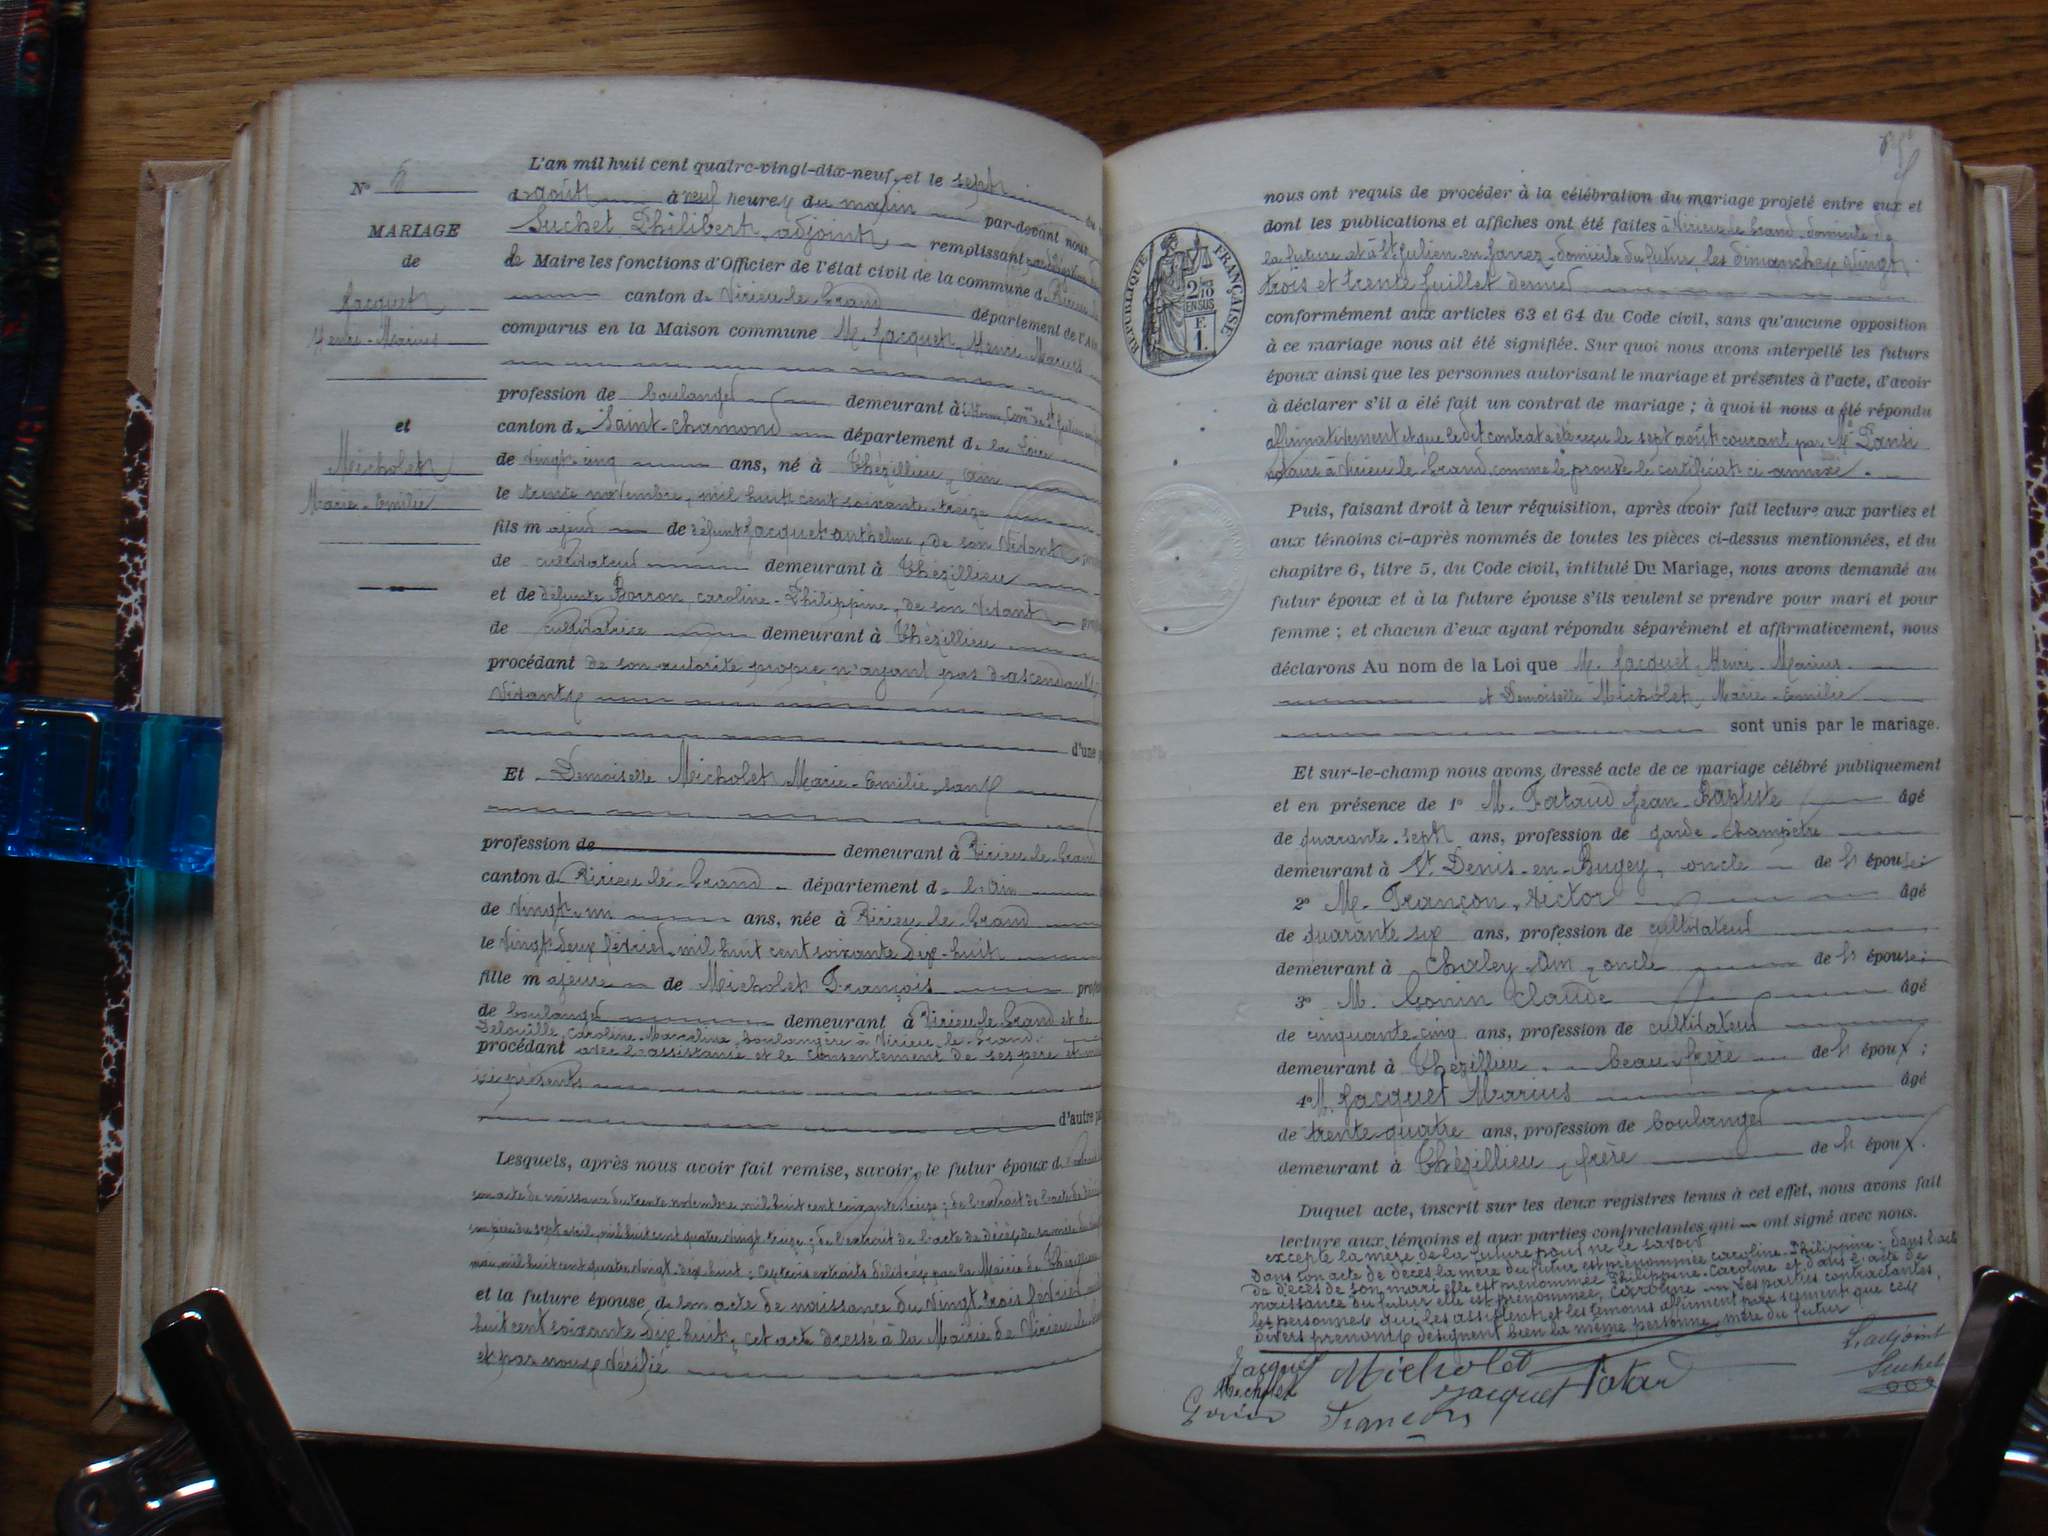 L'an mil huit cent quatre-vingt-dix-neuf, et le sept
d'août à neuf heures du matin par-devant nous
Suchet Philibert, adjoint remplissant
de Maire les fonctions d'Officier de l'état civil de la commune de
canton de Virieu-le-Grand département de l'Ain
comparus en la Maison commune M. Jacquet, Henri-Marius
profession de boulanger demeurant à
canton de Saint-Chamond département de la Loire
de vingt-cinq ans, né à Thézillieu, Ain
le trente novembre, mil huit cent soixante-treize
fils majeur de défunt Jacquet anthelme, de son vivant
de cultivateur demeurant à Thézillieu
et de défunte Borron, caroline-Philippine, de son vivant
de cultivatrice demeurant à Thézillieu
procédant de son autorité propre n'ayant pas d'ascendants
vivants
d'une
Et Demoiselle Micholet Marie-Emilie, sans
profession de demeurant à Virieu-le-Grand
canton de Virieu-le-Grand département de l'Ain
de vingt-un ans, née à Virieu-le-Grand
le vingt-deux février, mil huit cent soixante dix-huit
fille majeure de Micholet François
de boulanger demeurant à Virieu-le-Grand et de
Delouille, caroline-Marceline, boulangère à Virieu-le-Grand
procédant avec l'assistance et le consentement de ses père et
ici présents
d'autre
Lesquels, après nous avoir fait remise, savoir, le futur époux de
son acte de naissance du trente novembre, mil huit cent soixante-treize; de l'extrait de l'acte de décès
son père du sept avril, mil huit cent quatre-vingt-treize; de l'extrait de l'acte de décès de sa mère
mai, mil huit cent quatre-vingt-dix-huit; ces trois extraits délivrés par la Mairie de Thézillieu
et la future épouse, de son acte de naissance du vingt-trois février,
huit cent soixante dix-huit, cet acte dressé à la Mairie de Virieu-le-
et par nous vérifié
N° 5
MARIAGE
de
Jacquet
Henri-Marius
et
Micholet
Marie-Emilie
nous ont requis de procéder à la célébration du mariage projeté entre eux et
dont les publications et affiches ont été faites à Virieu-le-Grand, domicile de
la future et à St Julien-en-Jarrez, domicile du futur, les dimanches vingt
trois et trente Juillet dernier
conformément aux articles 63 et 64 du Code civil, sans qu'aucune opposition
à ce mariage nous ait été signifiée. Sur quoi nous avons interpellé les futurs
époux ainsi que les personnes autorisant le mariage et présentes à l'acte, d'avoir
à déclarer s'il a été fait un contrat de mariage; à quoi il nous a été répondu
affirmativement et que le dit contrat a été reçu le sept août courant par Me
notaire à Virieu-le-Grand, comme le prouve le certificat ci-annexé.
Puis, faisant droit à leur réquisition, après avoir fait lecture aux parties et
aux témoins ci-après nommés de toutes les pièces ci-dessus mentionnées, et du
chapitre 6, titre 5, du Code civil, intitulé Du Mariage, nous avons demandé au
futur époux et à la future épouse s'ils veulent se prendre pour mari et pour
femme; et chacun d'eux ayant répondu séparément et affirmativement, nous
déclarons Au nom de la Loi que M. Jacquet, Henri-Marius
et Demoiselle Micholet, Marie-Emilie
sont unis par le mariage.
Et sur-le-champ nous avons dressé acte de ce mariage célébré publiquement
et en présence de 1° M. Fataud Jean-Baptiste âgé
de quarante-sept ans, profession de garde-champêtre
demeurant à St Denis-en-Bugey, oncle de l'épouse;
2° M. Françon, Victor âgé
de quarante six ans, profession de cultivateur
demeurant à Chaley, Ain, oncle de l'épouse;
3° M. Gonin Claude âgé
de cinquante-cinq ans, profession de cultivateur
demeurant à Thézillieu, beau-frère de l'époux;
4° M. Jacquet Marius âgé
de trente-quatre ans, profession de boulanger
demeurant à Thézillieu, frère de l'époux.
Duquel acte, inscrit sur les deux registres tenus à cet effet, nous avons fait
lecture aux témoins et aux parties contractantes qui ont signé avec nous.
excepté la mère de la future pour ne le savoir
Dans son acte de décès, la mère du futur est prénommée caroline-Philippine; dans l'acte
de décès de son mari elle est prénommée Philippine-Caroline et dans l'acte de
naissance du futur elle est prénommée, caroline les parties contractantes,
les personnes qui les assistent et les témoins affirment par serment que ces
divers prénoms désignent bien la même personne, mère du futur
Jacquet Micholet Fatad L'adjoint
Micholet Jacquet Suchet
Gonin Françon
RÉPUBLIQUE FRANÇAISE
2/10
EN SUS
F.
1.